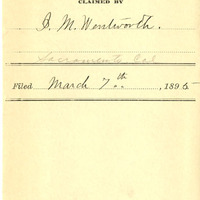 CLAIMED BY
I. M. Wentworth.
Sacramento Cal
Filed March 7th, 1895